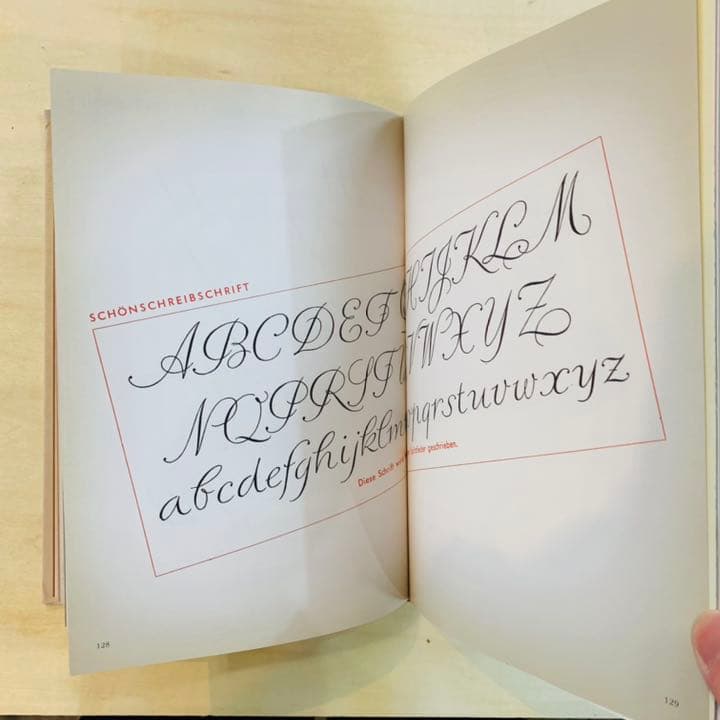 SCHÖNSCHREIBSCHRIFT
ABCDEF HIJKLM
NQPRST VWXYZ
abcdefghijklm pqrstuvwxyz
Diese Schrift geschrieben.
128
129